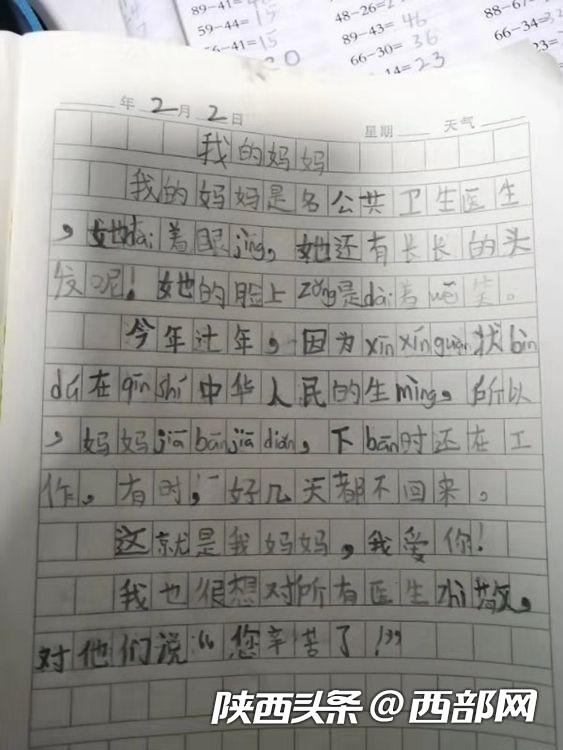 89-41=48
59-44=15
56-41=15
48-26=
89-43=46
66-30=36
14=23
88-67=
66-34=
年2月2日 星期 天气
我的妈妈
我的妈妈是名公共卫生医生
，她dài着眼jīng，她还有长长的头
发呢！她的脸上zǒng是dài着wēi笑。
今年过年，因为xīn xíng guān状bìn
dú在qīn shí中华人民的生mìng，所以
，妈妈jiā bān jiā diǎn，下bān时还在工
作。有时，好几天都不回来。
这就是我妈妈，我爱你！
我也很想对所有医生zhì敬，
对他们说“您辛苦了！”
陕西头条@西部网